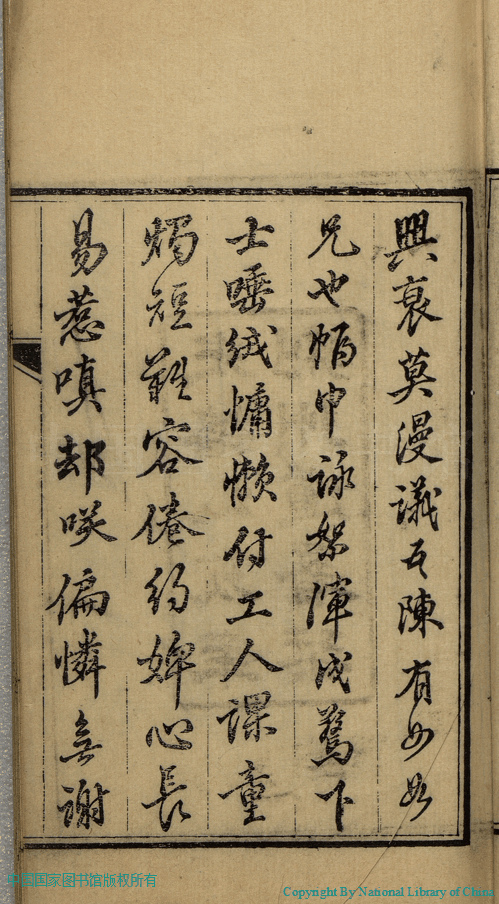 興衰莫漫議互陳有女如
兄也幗巾詠絮渾成驚下
士唾絨慵懶付工人課童
燭短難容倦約婢心長
易惹嗔却咲偏憐無謝
中国国家图书馆版权所有
Copyright By National Library of China